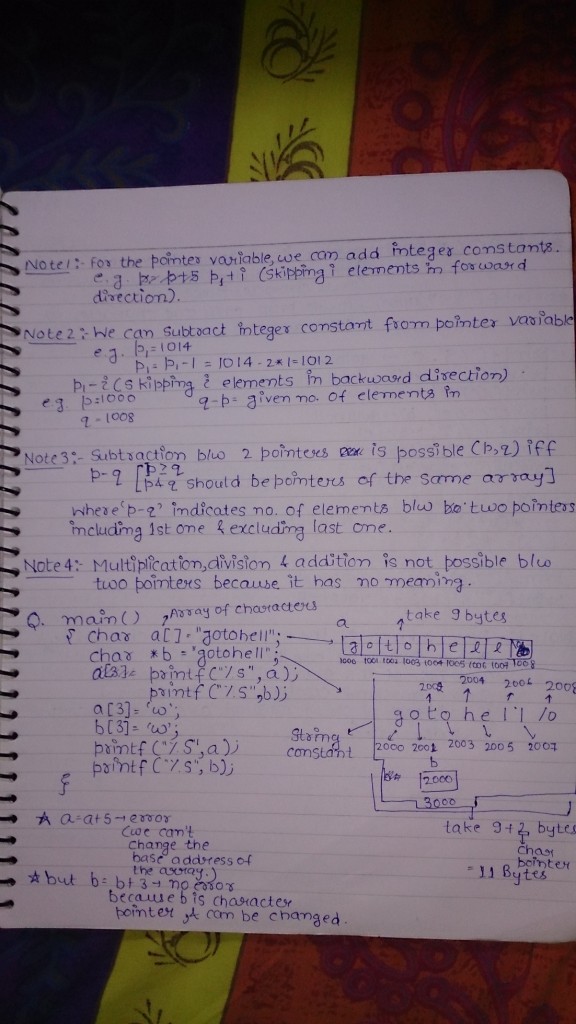 Note1:- For the pointer variable, we can add integer constants.
e.g. p=p+5 p1+i (skipping i elements in forward
direction).
Note2:- We can subtract integer constant from pointer variable
e.g. p1=1014
p1=p1-1 = 1014-2*1=1012
p1-i (skipping i elements in backward direction).
e.g. p=1000 q-p= given no. of elements in
q-1008
Note3:- Subtraction b/w 2 pointers is possible (p,q) iff
p-q [p≥q
p & q should be pointers of the same array]
where 'p-q' indicates no. of elements b/w two pointers
including 1st one & excluding last one.
Note4:- Multiplication, division & addition is not possible b/w
two pointers because it has no meaning.
Q. main() Array of characters
{ char a[]="gotohell";
char *b = "gotohell";
a[3]= printf("%s",a);
printf("%s",b);
a[3]='w';
b[3]='w';
printf("%s",a);
printf("%s",b);
}
a take 9 bytes
g o t o h e l l
1000 1001 1002 1003 1004 1005 1006 1007 1008
2002 2004 2006 2008
g o t o h e l l \0
2000 2001 2003 2005 2007
String
constant
b
2000
3000
take 9+2 bytes
char
pointer
= 11 Bytes
* a=a+5→error
(we can't
change the
base address of
the array.)
* but b=b+3→no error
because b is character
pointer, it can be changed.